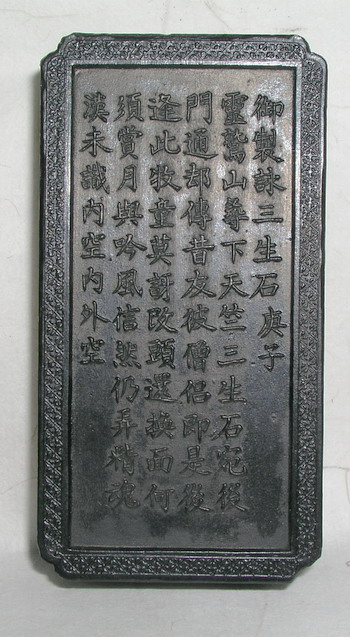 御製詠三生石 庚子
靈鷲山尋下天竺三生石宛後
門通却傳昔友彼僧侶即是後
逢此牧童莫訝改頭還換面何
須賞月與吟風信然仍弄精魂
漢未識內空內外空